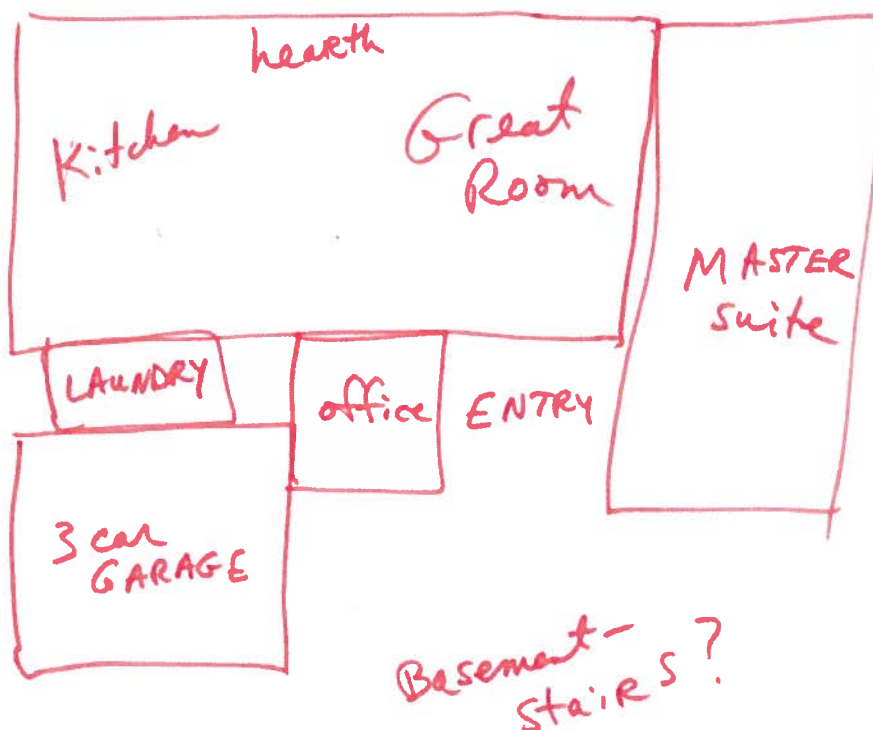 hearth
Kitchen
Great
Room
MASTER
suite
LAUNDRY
office
ENTRY
3 car
GARAGE
Basement-
stairs?